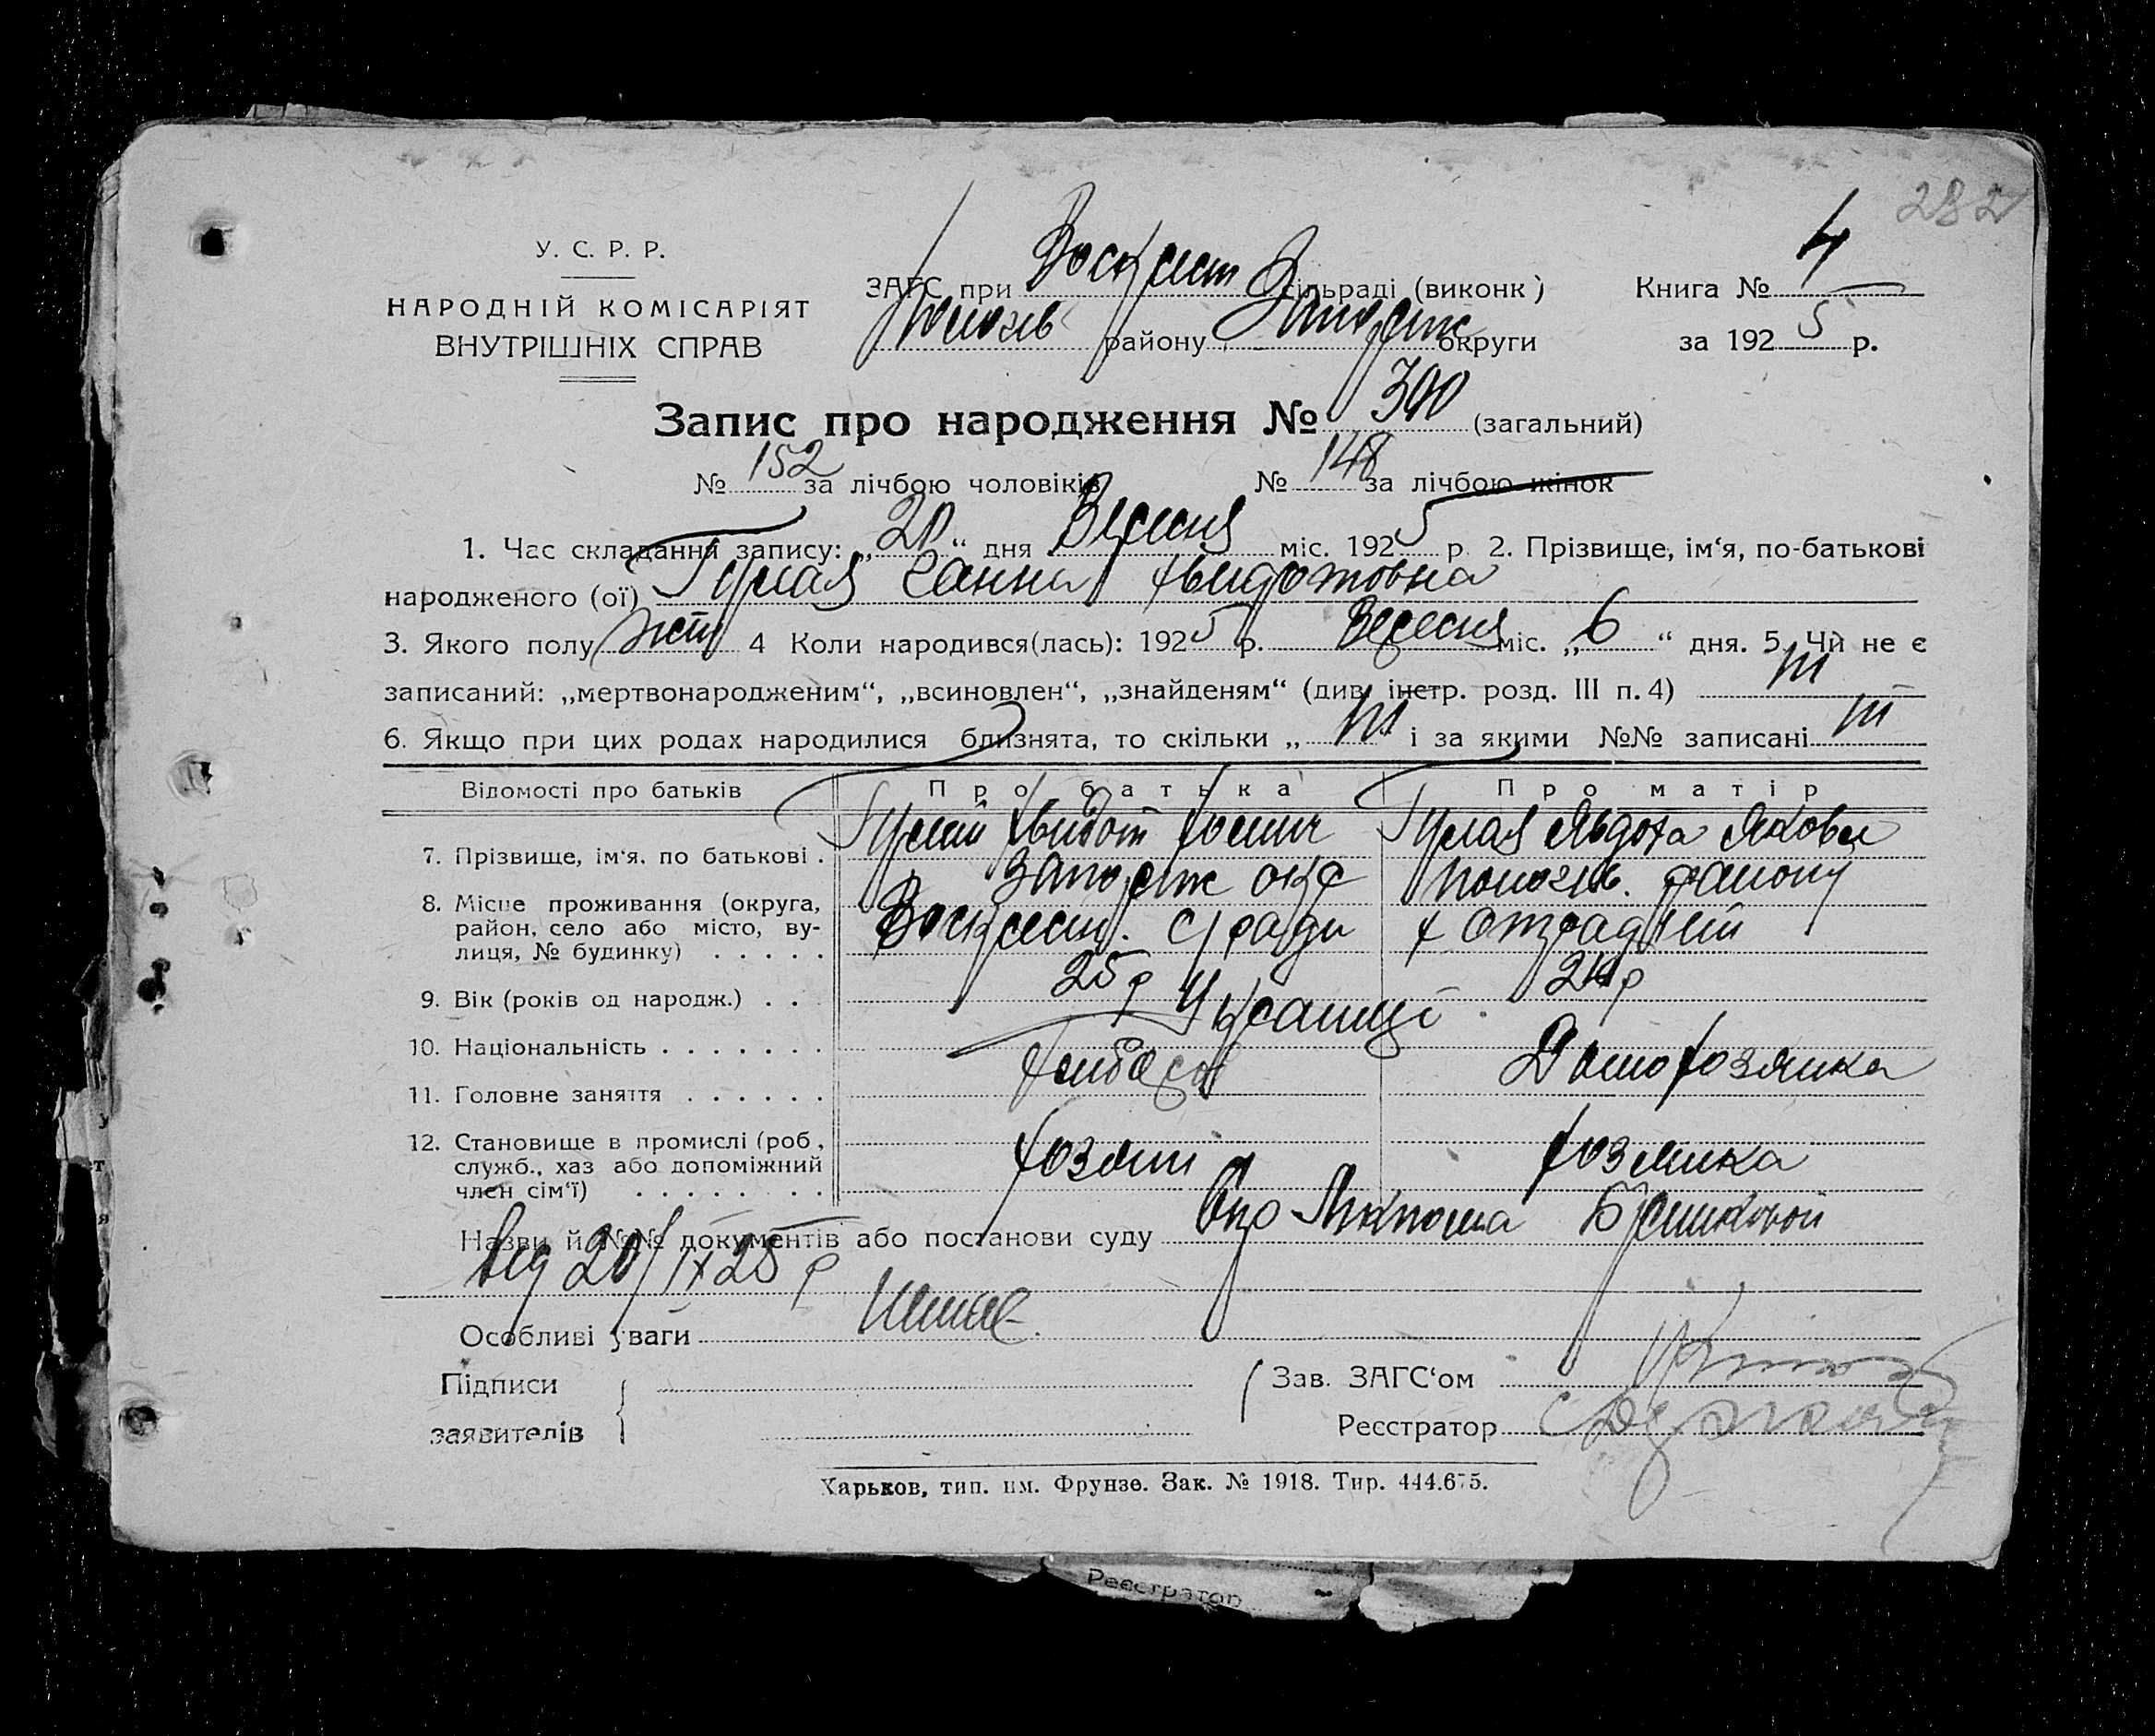 282
У. С. Р. Р.
НАРОДНІЙ КОМІСАРІЯТ
ВНУТРІШНІХ СПРАВ
ЗАГС при Воскресен сільраді (виконк)
Пологів району, Запоріж округи
Книга № 4
за 1925 р.
Запис про народження № 300 (загальний)
№ 152 за лічбою чоловіків № 148 за лічбою жінок
1. Час складання запису: „20“ дня Вересня міс. 1925 р. 2. Прізвище, ім‘я, по-батькові
народженого (ої) Ганна Хведотовна
3. Якого полу жін 4 Коли народився(лась): 1925 р. Вересня міс. „6“ дня. 5. Чи не є
записаний: „мертвонародженим“, „всиновлен“, „знайденям“ (див. інстр. розд. III п. 4) ні
6. Якщо при цих родах народилися близнята, то скільки „ ні і за якими №№ записані ні
Відомості про батьків Про батька Про матір
7. Прізвище, ім‘я, по батькові . Хведот Хомич Явдоха Яковл
8. Місце проживання (округа, район, село або місто, вулиця, № будинку) . . . . . Запоріж окр Пологів. району
Воскресен. с/ради х Отрадний
9. Вік (років од народж.) . . . 25 р
10. Національність . . . . . . . Українці
11. Головне заняття . . . . . . Хлібороб Домохозяйка
12. Становище в промислі (роб., служб., хаз або допоміжний член сім‘ї) . . . . . . . Хозяин Хозяйка
Назви й №№ документів або постанови суду
від 20/IX 25 р
Особливі уваги Немає
Підписи
заявителів
Зав. ЗАГС‘ом
Реєстратор
Харьков, тип. им. Фрунзе. Зак. № 1918. Тир. 444.675.
Реєстратор